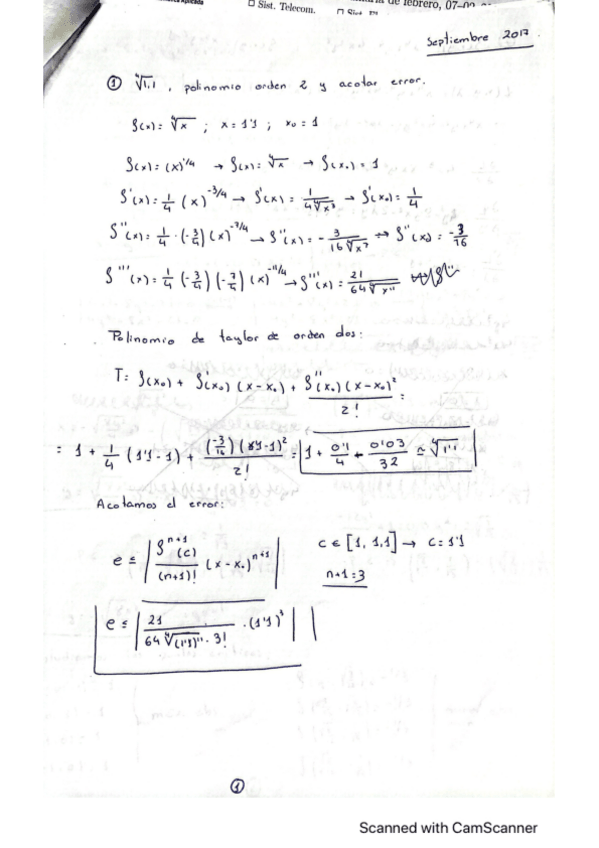 □ Sist. Telecom.
de febrero, 07-09
Septiembre 2017
① ∜1,1 , polinomio orden 2 y acotar error.
f(x) = ∜x ; x = 1'1 ; x₀ = 1
f(x) = (x)^{1/4} → f(x) = ∜x → f(x₀) = 1
f'(x) = 1/4 (x)^{-3/4} → f'(x) = 1/(4 ∜x³) → f'(x₀) = 1/4
f''(x) = 1/4 · (-3/4) (x)^{-7/4} → f''(x) = - 3/(16 ∜x⁷) ⇔ f''(x₀) = -3/16
f'''(x) = 1/4 (-3/4) (-7/4) (x)^{-11/4} → f'''(x) = 21/(64 ∜x¹¹)
Polinomio de taylor de orden dos:
T = f(x₀) + f'(x₀) (x-x₀) + f''(x₀) (x-x₀)²/2! =
= 1 + 1/4 (1'1-1) + (-3/16) (1'1-1)²/2! = 1 + 0'1/4 + 0'03/32 ≃ ∜1'1
Acotamos el error:
e ≤ | f^{n+1}(c)/(n+1)! (x-x₀)^{n+1} | c ∈ [1, 1,1] → c = 1'1
n+1 = 3
e ≤ | 21/(64 ∜(1'1)¹¹ · 3!) · (1'1)³ |
①
Scanned with CamScanner